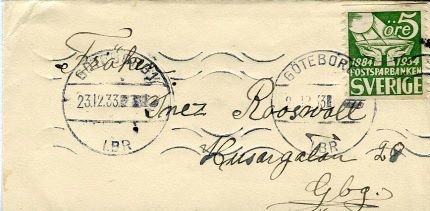 5 öre
1884 1934
POSTSPARBANKEN
SVERIGE
Fröken
GÖTEBORG 1
GÖTEBORG
23.12.33
LBR
LBR
Inez Rooswall
Husargatan 28
Gbg.